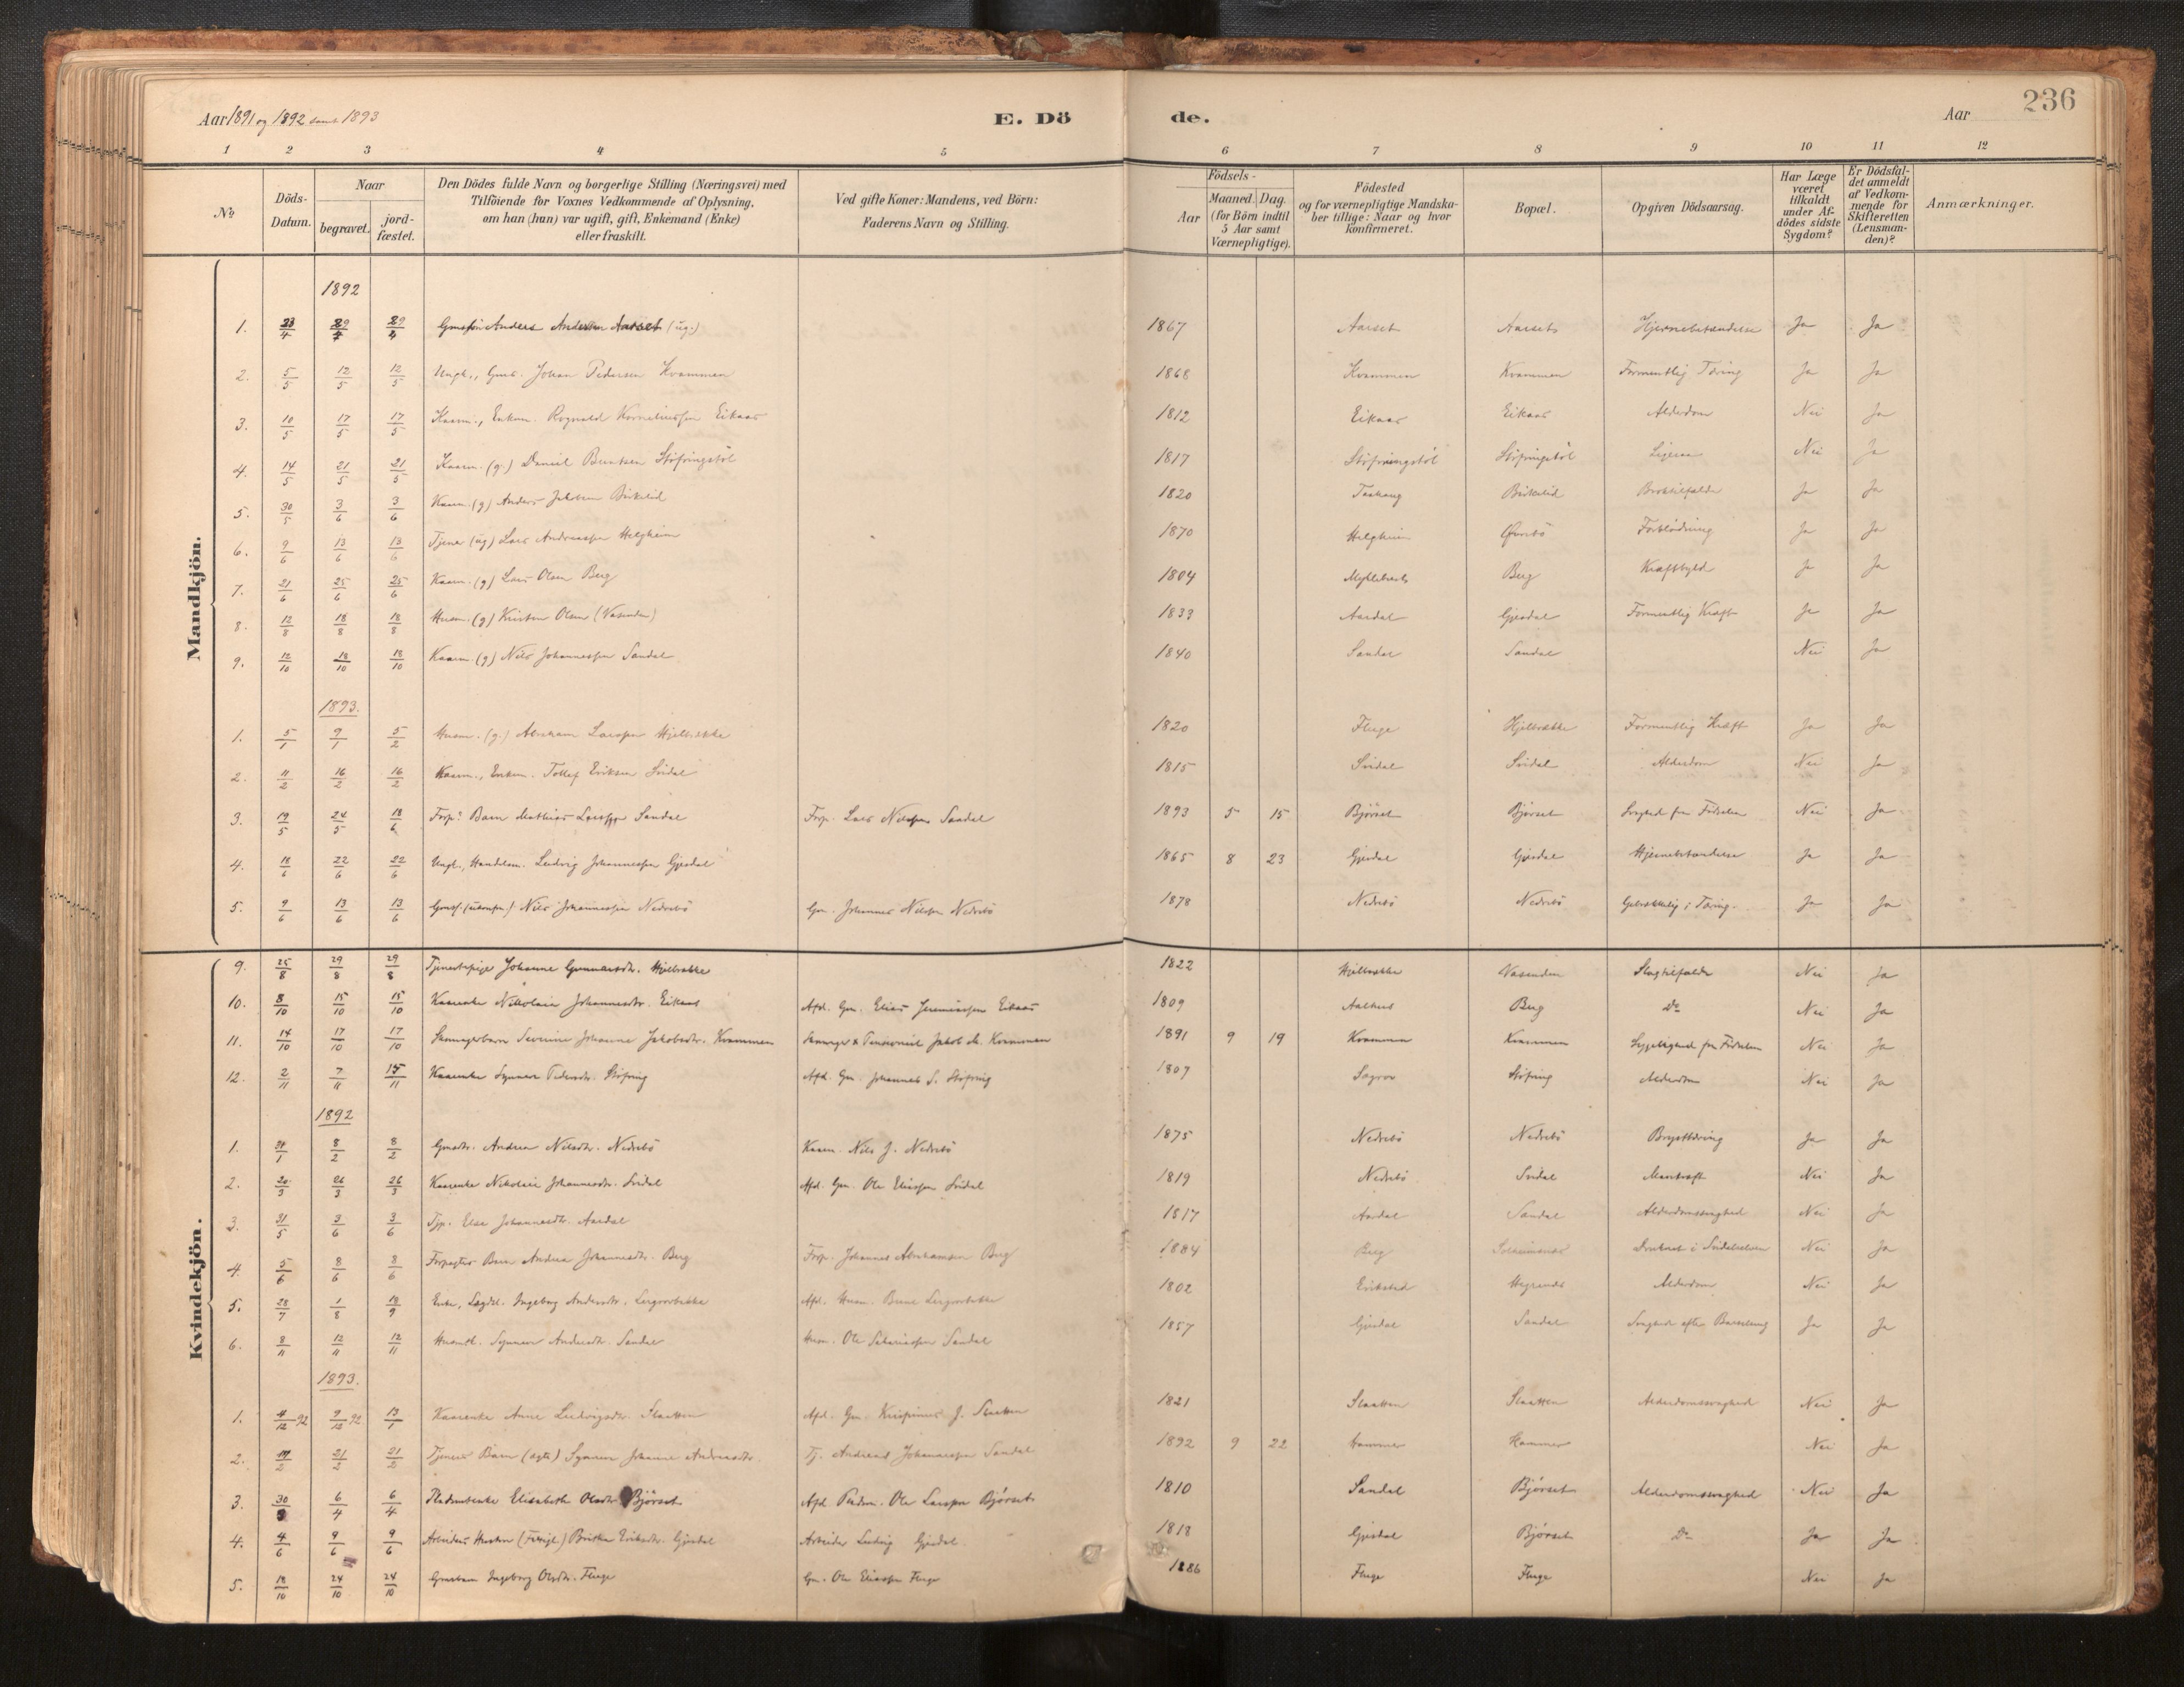 Aar 1891 og 1892 samt 1893 E. Dö de. Aar 236
1 2 3 4 5 6 7 8 9 10 11 12
No
Döds-Datum.
Naar
begravet.
jord-fæstet.
Den Dödes fulde Navn og borgerlige Stilling (Næringsvei) med
Tilföiende for Voxnes Vedkommende af Oplysning,
om han (hun) var ugift, gift, Enkemand (Enke)
eller fraskilt.
Ved gifte Koner: Mandens, ved Börn:
Faderens Navn og Stilling.
Födsels-
Aar
Maaned. Dag.
(for Börn indtil
5 Aar samt
Værnepligtige).
Födested
og for værnepligtige Mandska-
ber tillige: Naar og hvor
konfirmeret.
Bopæl.
Opgiven Dödsaarsag.
Har Læge
været
tilkaldt
under Af-
dödes sidste
Sygdom?
Er Dödsfal-
det anmeldt
af Vedkom-
mende for
Skifteretten
(Lensman-
den)?
Anmærkninger.
Mandkjön.
1892
1. 23/4 29/4 29/4 Anders Andersen Aarset (ug.) 1867 Aarset Aarset Hjernebetændelse Ja Ja
2. 5/5 12/5 12/5 Ungk., Gmb. Johan Pedersen Kvammen 1868 Kvammen Kvammen Formentlig Tæring Ja Ja
3. 10/5 17/5 17/5 Kaarm., Enkem. Rognald Korneliussen Eikaas 1812 Eikaas Eikaas Alderdom Nei Ja
4. 14/5 21/5 21/5 Kaarm. (g.) Daniel Bentsen Støfringstøl 1817 Støfringstøl Støfringstøl Ligesaa Nei Ja
5. 30/5 3/6 3/6 Kaarm. (g) Anders Birkelid 1820 Birkelid Ja Ja
6. 9/6 13/6 13/6 Tjener (ug) Lars Andreassen Helgheim 1870 Helgheim Forblödning Ja Ja
7. 21/6 25/6 25/6 Kaarm. (g) Lars Olsen Berg 1804 Myklebust Berg Kræftbyld Ja Ja
8. 12/8 18/8 18/8 Husm. (g) Kristen Olsen (Vasenden) 1833 Aardal Gjesdal Formentlig Kræft Ja Ja
9. 12/10 18/10 18/10 Kaarm. (g) Nils Johannessen Sandal 1840 Sandal Sandal Nei Ja
1893.
1. 5/1 9/1 5/2 Husm. (g.) Abraham Larssen Hjelbrekke 1820 Fluge Hjelbrekke Formentlig Kræft Ja Ja
2. 11/2 16/2 16/2 Kaarm., Enkem. Tollef Eriksen Svidal 1815 Svidal Svidal Alderdom Nei Ja
3. 19/5 24/5 18/6 Forp. Barn Mathias Larssen Sandal Forp. Lars Nilssen Sandal 1893 5 15 Bjørset Bjørset Svaghed fra Fødselen Nei Ja
4. 18/6 22/6 22/6 Ungk., Handelsm. Ludvig Johannessen Gjesdal 1865 8 23 Gjesdal Gjesdal Hjernebetændelse Ja Ja
5. 9/6 13/6 13/6 Nils Johannessen Nedrebö Gm. Johannes Nilssen Nedrebö 1878 Nedrebö Nedrebö Ja Ja
Kvindekjön.
9. 25/8 29/8 29/8 Tjenestepige Johanne Gunnarsdtr. Hjelbrekke 1822 Hjelbrekke Vasenden Slagtilfælde Nei Ja
10. 8/10 15/10 15/10 Kaarenke Nikolaia Johannesdtr. Eikaas Afd. Gm. Elias Jeremiassen Eikaas 1809 Aalhus Berg Do Nei Ja
11. 14/10 17/10 17/10 Severine Johanne Jakobsdtr. Kvammen Jakob Kvammen 1891 9 19 Kvammen Kvammen Sygelighed fra Fødselen Nei Ja
12. 2/11 7/11 15/11 Kaarenke Synneve Pedersdtr. Støfring Afd. Gm. Johannes S. Støfring 1807 Støfring Alderdom Nei Ja
1892
1. 31/1 8/2 8/2 Gmdtr. Andrea Nilsdtr. Nedrebö Kaarm. Nils J. Nedrebö 1875 Nedrebö Nedrebö Brysttæring Ja Ja
2. 20/3 26/3 26/3 Kaarenke Nikolaia Johannesdtr. Svidal Afd. Gm. Ole Eliassen Svidal 1819 Nedrebö Svidal Nei Ja
3. 31/5 3/6 3/6 Tjp. Else Johannesdtr. Aardal 1817 Aardal Sandal Alderdomssvaghed Nei Ja
4. 5/6 8/6 8/6 Forpagter Barn Andrea Johannesdtr. Berg Forp. Johannes Abrahamsen Berg 1884 Berg Nei Ja
5. 28/7 1/8 18/9 Enke, Lægdsl. Ingeborg Andersdtr. Afd. Husm. 1802 Alderdom Nei Ja
6. 8/11 12/11 12/11 Synneve Andersdtr. Sandal Husm. Ole Sakariassen Sandal 1857 Gjesdal Sandal Svaghed efter Barselseng Ja Ja
1893.
1. 4/12 92 9/12 92 13/1 Kaarenke Anne Ludvigsdtr. Slaatten Afd. Gm. Krispinus J. Slaatten 1821 Slaatten Slaatten Alderdomssvaghed Nei Ja
2. 21/2 21/2 Tjeners Barn (ægte) Synneve Johanne Andreasdtr. Tj. Andreas Johannessen Sandal 1892 9 22 Hammer Hammer Nei Ja
3. 30/3 6/4 6/4 Elisabeth Olsdtr. Bjørset Afd. Ole Larssen Bjørset 1810 Sandal Bjørset Alderdomssvaghed Nei Ja
4. 4/6 9/6 9/6 Arbeiders Hustru Brithe Eriksdtr. Gjesdal Arbeider Ludvig Gjesdal. 1818 Gjesdal Bjørset Do Ja Ja
5. 18/10 24/10 24/10 Gmsbarn Ingeborg Olsdtr. Fluge Gm. Ole Eliassen Fluge 1886 Fluge Fluge Nei Ja